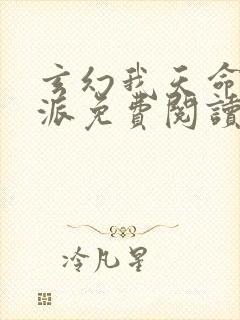 玄幻我天命
派免費閱讀
冷凡星